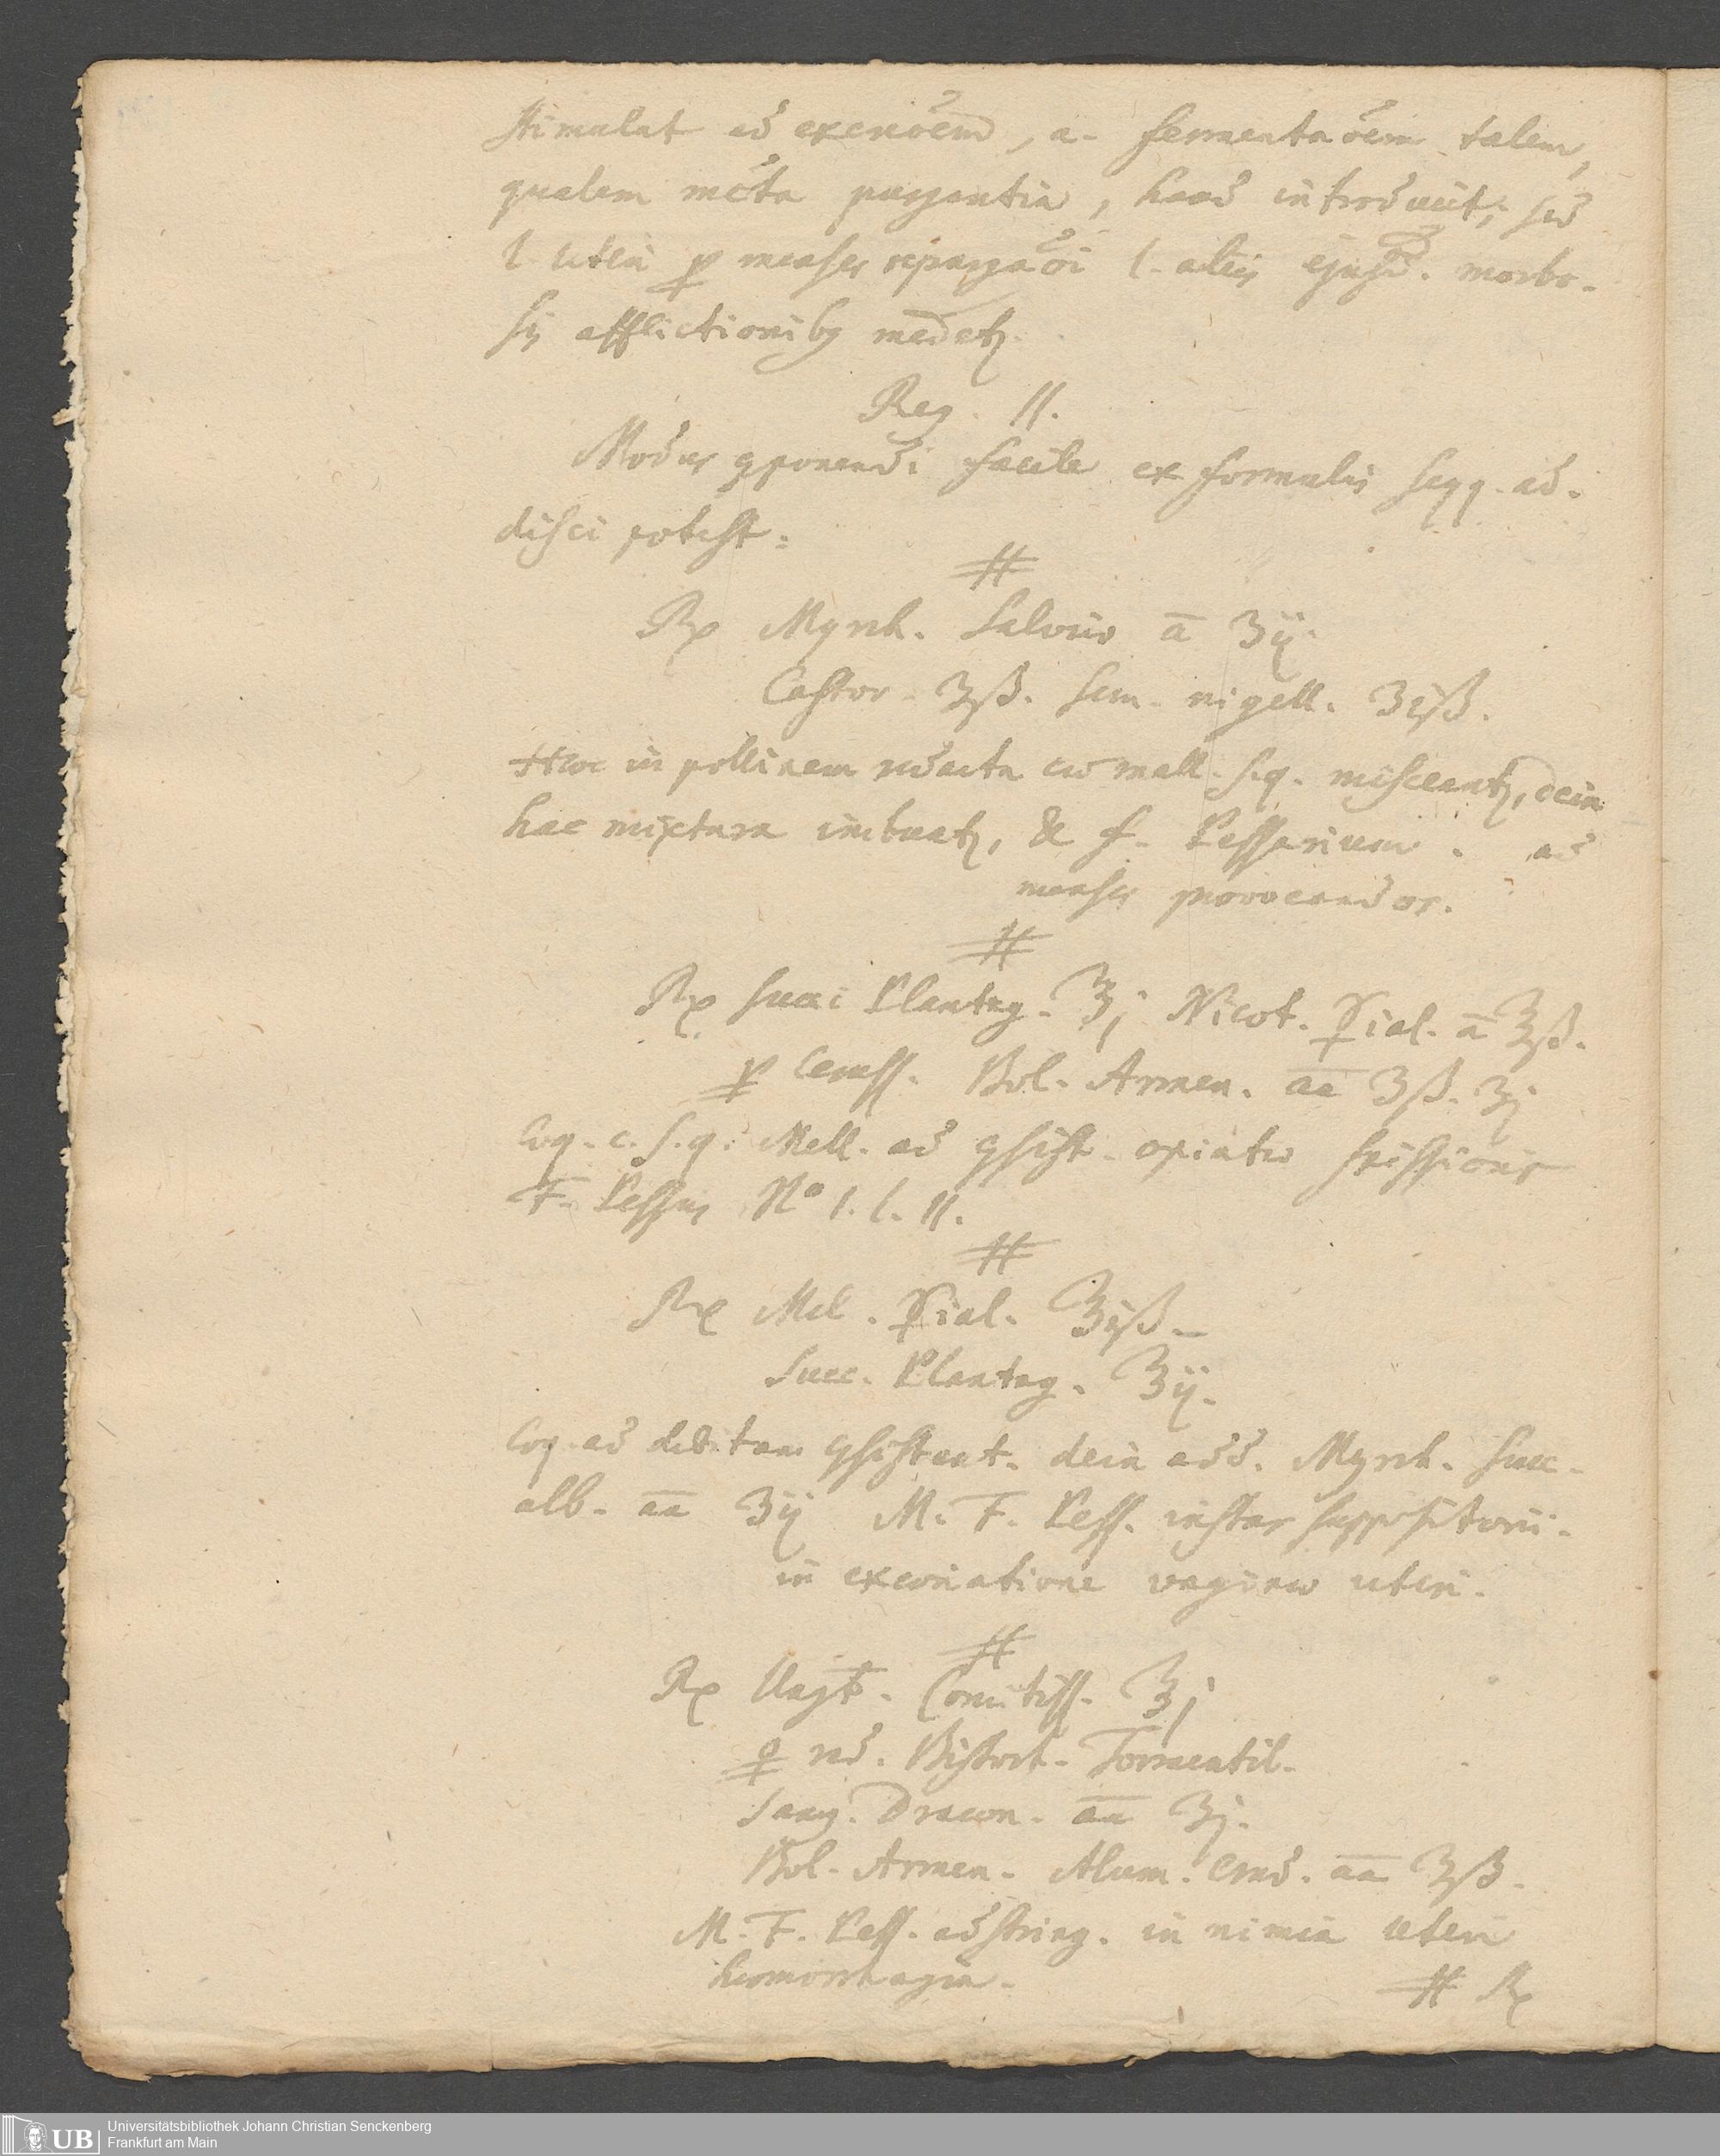 stimulat ad excrıõem, a. fermentaõem talem,
qualem mc̃ta purgantia, haud introducit; sed
l. uteri p menses repurgaõi l. aliis ejusd. morbo-
sis afflictionibꝫ medetꝫ.
Reg. II.
Modus ꝯponendi facile ex formulis seqq. ad-
disci potest:
#
Rx Myrrh. Salviæ ā ʒij.
Castor. ʒß. sem. nigell. ʒiß.
Hæc in pollinem redacta cū mell. s.q. misceantꝫ, dein
hac mixtura imbuatꝫ, & f. Pessarium. ad
menses provocandos.
#
Rx succi Plantag. ℥j Nicot. ꝑial. ā ℥ß.
p Ceruss. Bol. Armen. āā ʒß. ʒj
Coq. c. s.q. Mell. ad ꝯsist. opiatæ spissioris
F. Pessus No I. l. II.
#
Rx Mel. ꝑial. ℥iß.
Succ. Plantag. ℥ij.
Coq. ad debitam ꝯsistent. dein add. Myrrh. Succ.
alb. āā ʒij M. F. Pess. instar suppositorii.
in excoriatione vaginæ uteri.
#
Rx Ungt. Comitiss. ℥j
p rad. Bistort. Tormentil.
Sang. Dracon. āā ʒj.
Bol. Armen. Alum. crud. āā ʒß.
M. F. Pess. adstring. in nimia uteri
hæmorrhagia.
# Rx
UB
Universitätsbibliothek Johann Christian Senckenberg
Frankfurt am Main